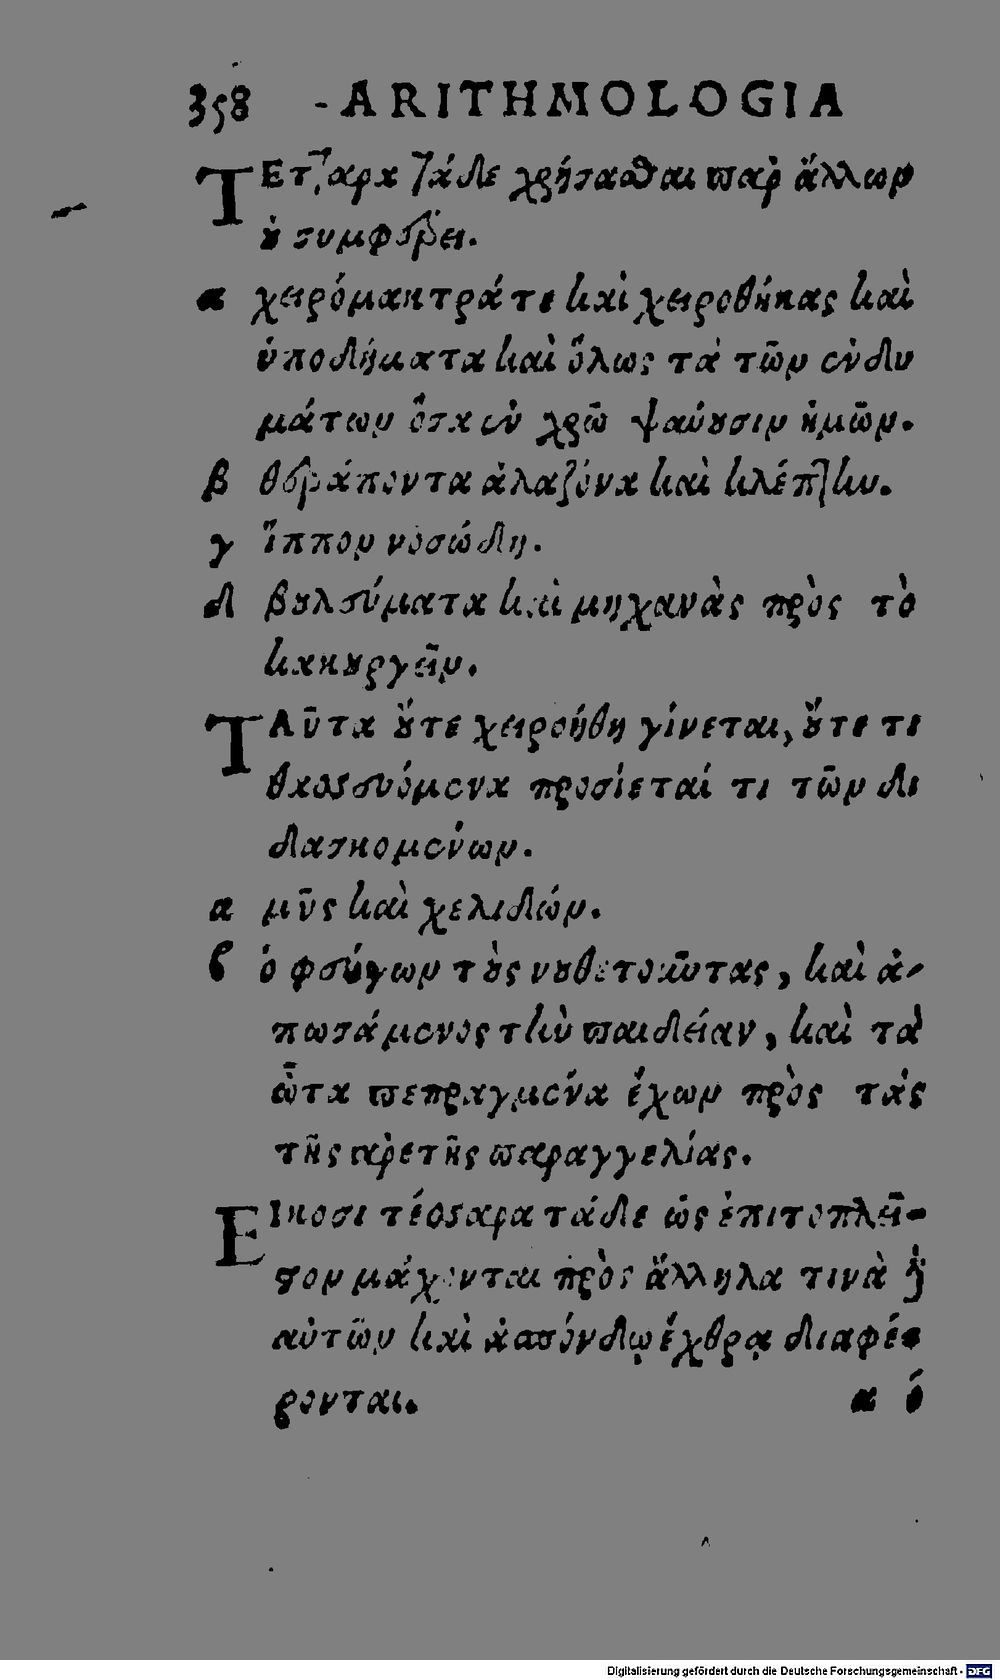 358 ARITHMOLOGIA
ΤΕτταρα τάδε χρήσασθαι παρ' ἄλλων
οὐ συμφέρει.
α χειρόμακτρά τε καὶ χειροθήκας καὶ
ὑποδήματα καὶ ὅλως τὰ τῶν ἐνδυ
μάτων ὅσα ἐν χρῷ ψαύουσιν ἡμῶν.
β θεράποντα ἀλαζόνα καὶ κλέπτην.
γ ἵππον νοσώδη.
δ βουλεύματα καὶ μηχανὰς πρὸς τὸ
κακουργεῖν.
ΤΑῦτα οὔτε χειροήθη γίνεται, οὔτε τι
θασσευόμενα προσίεταί τι τῶν δι
δασκομένων.
α μῦς καὶ χελιδών.
β ὁ φεύγων τοὺς νουθετοῦντας, καὶ ἀ-
πωσάμενος τὴν παιδείαν, καὶ τὰ
ὦτα πεπραγμένα ἔχων πρὸς τάς
τῆς ἀρετῆς παραγγελίας.
ΕΙκοσι τέσσαρα τάδε ὡς ἐπιτοπλεῖ-
στον μάχονται πρὸς ἄλληλα τινὰ ἢ
αὐτῶν καὶ ἀσπόνδῳ ἔχθρᾳ διαφέ-
ρονται.
α ὁ
Digitalisierung gefördert durch die Deutsche Forschungsgemeinschaft - DFG